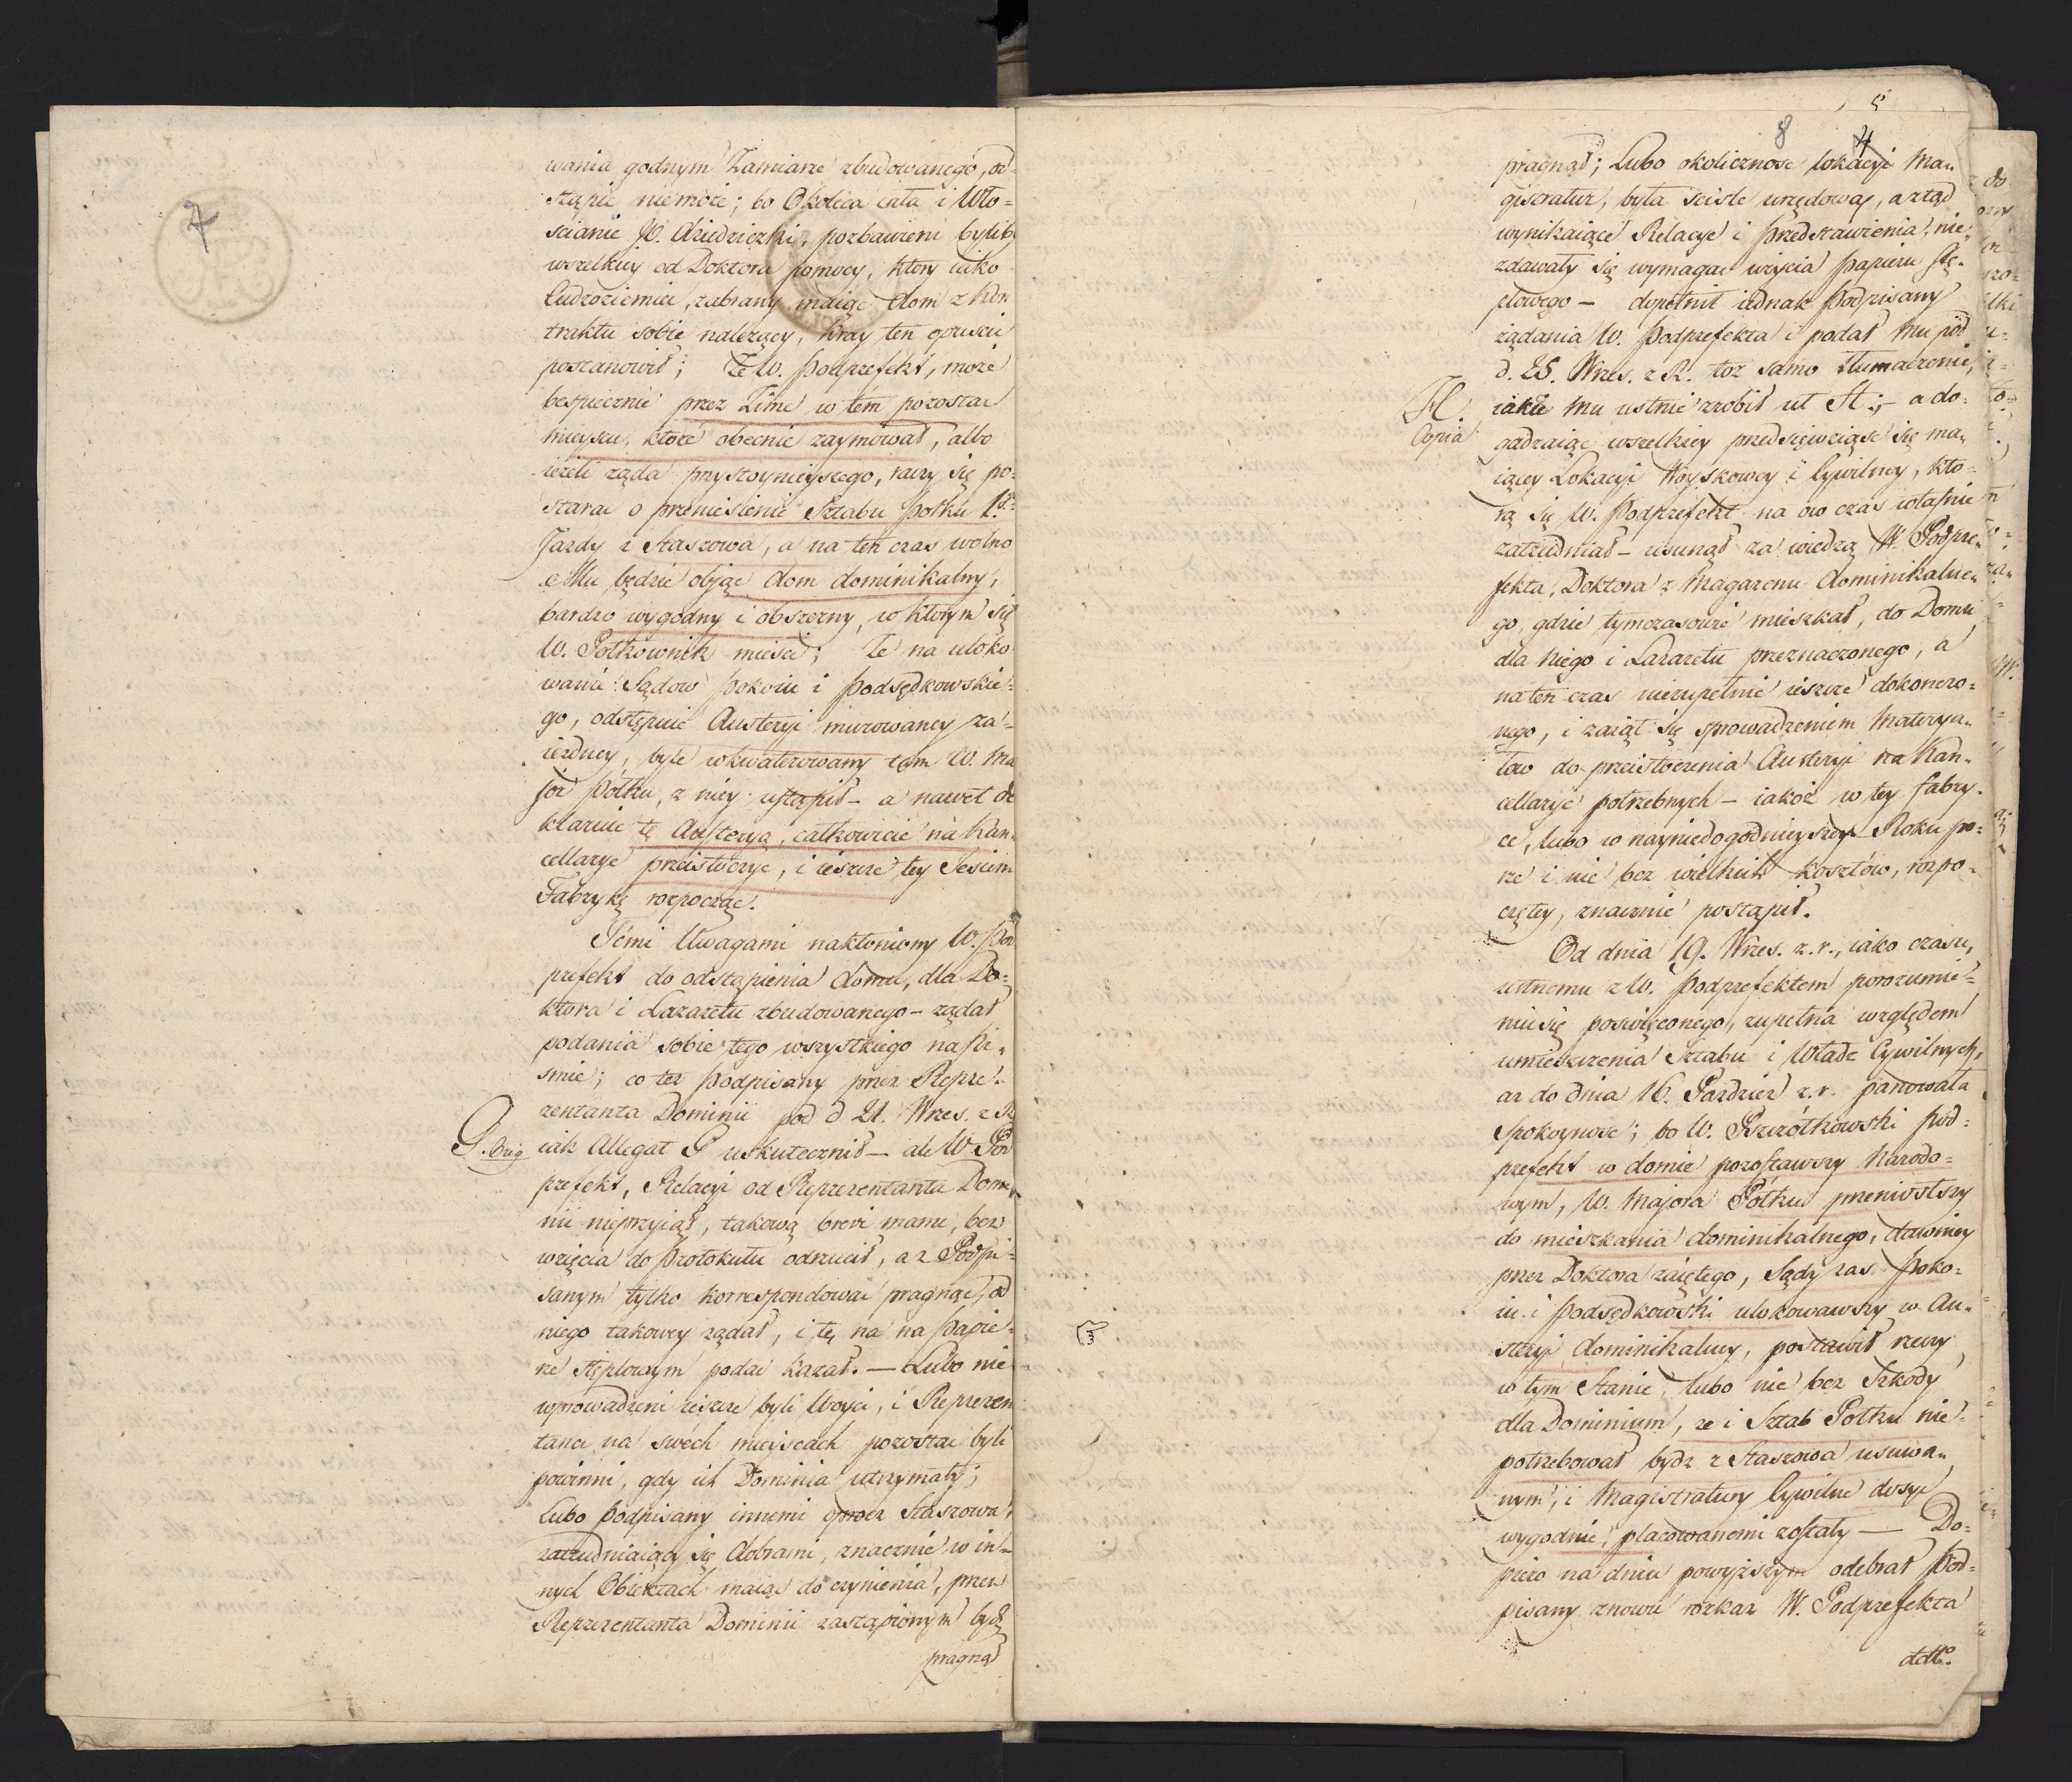 7
wania godnym Zamiarze zbudowanego, od-
stąpić niemoże; bo Okolica cała i Wło=
ścianie JO. dziedziczki, pozbawieni byliby
wszelkiey od Doktora pomocy, który iako
Cudzoziemiec, zabrany maiąc dom z kon
traktu sobie należący, kray ten opuścić
postanowił; Że W. Podprefekt, może
bespiecznie przez Zime w tem pozostać
mieyscu, które obecnie zaymował, albo
ieżeli żąda przystoynieyszego, raczy się po=
starać o przeniesienie Sztabu Połku 1.go
Jazdy z Staszowa, a na ten czas wolno
Mu będzie obiąć dom dominikalny,
bardzo wygodny i obszerny, w którym się
W. Połkownik mieści; Że na uloko
wanie Sądów Pokoiu i Podsędkowskie=
go, odstępuie Austeryi murowaney za=
iezdney, byle wkwaterowany tam W. Ma
jor Połku, z niey ustąpił – a nawet de
klaruie tę Austeryą, całkowicie na kan
cellarye przeistoczyć, i ieszcze tey Jesieni
Fabrykę rozpocząć.
Temi Uwagami nakłoniony W. Pod
prefekt do odstąpienia domu, dla Do=
ktora i Lazaretu zbudowanego – żądał
podania sobie tego wszystkiego na Pi=
śmie; co też Podpisany przez Repre=
zentanta Dominii pod d 21. Wrześ. z R
G. Orig iak Allegat G uskutecznił – ale W. Pod
prefekt, Relacyi od Reprezentanta Domi
nii nieprzyiął, takową brevi manu, bez
wzięcia do Protokułu odrzucił, a z Podpi=
sanym tylko korrespondować pragnąc, od
niego takowey żądał, i tę na na Papie=
rze stęplowym podać kazał. – Lubo nie
wprowadzeni ieszcze byli Woyci, i Reprezen
tanci na swéch mieyscach pozostać byli
powinni, gdy ich Dominia utrzymały;
Lubo Podpisany innemi oprócz Staszowa,
zatrudniaiący się dobrami, znacznie w in=
nych Obiektach maiąc do czynienia, przez
Reprezentanta Dominii zastąpionym być
pragnął
5
8 4
pragnął; Lubo okoliczność lokacyi Ma=
gistratur, była ściśle urzędową, a ztąd
wynikaiące Relacye i Przedstawienia, nie=
zdawały się wymagać użycia Papieru stę=
plowego – dopełnił iednak Podpisany
żądania W. Podprefekta i podał Mu pod
d. 25. Wrześ. z R. toż samo tłumaczenie,
H. Copia iakie Mu ustnie zrobił ut H.; – a do=
gadzaiąc wszelkiey przedsięwziąść się ma=
iącey Lokacyi Woyskowey i Cywilney, któ=
rą się W. Podprefekt na ów czas właśnie
zatrudniał – usunął za wiedzą W. Podpre=
fekta, Doktora z Magazenu dominikalne=
go, gdzie tymczasowie mieszkał, do Domu
dla niego i Lazaretu przeznaczonego, a
na ten czas niezupełnie ieszcze dokończo=
nego, i zaiął się sprowadzeniem Materya=
łow do przeistoczenia Austeryi na Kan=
cellarye potrzebnych – iakoż w tey fabry=
ce, lubo w nayniedogodnieyszey Roku po=
rze i nie bez wielkich kosztów, rozpo=
czętey, znacznie postąpił.
Od dnia 19. Wrześ. z. r., iako czasu,
ustnemu z W. Podprefektem porozumie=
niu się poświęconego, zupełna względem
umieszczenia Sztabu i Władz Cywilnych,
aż do dnia 16. Paździer z. r. panowała
spokoyność; bo W. Pszczółkowski Pod=
prefekt w domie pozostawszy Narodo=
wym, W. Majora Połku przeniósłszy
do mieszkania dominikalnego, dawniey
przez Doktora zaiętego, Sądy zaś Poko=
iu i Podsędkowski ulokowawszy w Au=
steryi dominikalney, postawił rzeczy
w tym Stanie, lubo nie bez Szkody
dla Dominium, że i Sztab Połku nie=
potrzebował bydź z Staszowa usuwa=
nym, i Magistratury Cywilne dosyć
wygodnie, placowanemi zostały – Do=
piero na dniu powyższym odebrał Pod=
pisany znowu rozkaz W. Podprefekta
ddto.